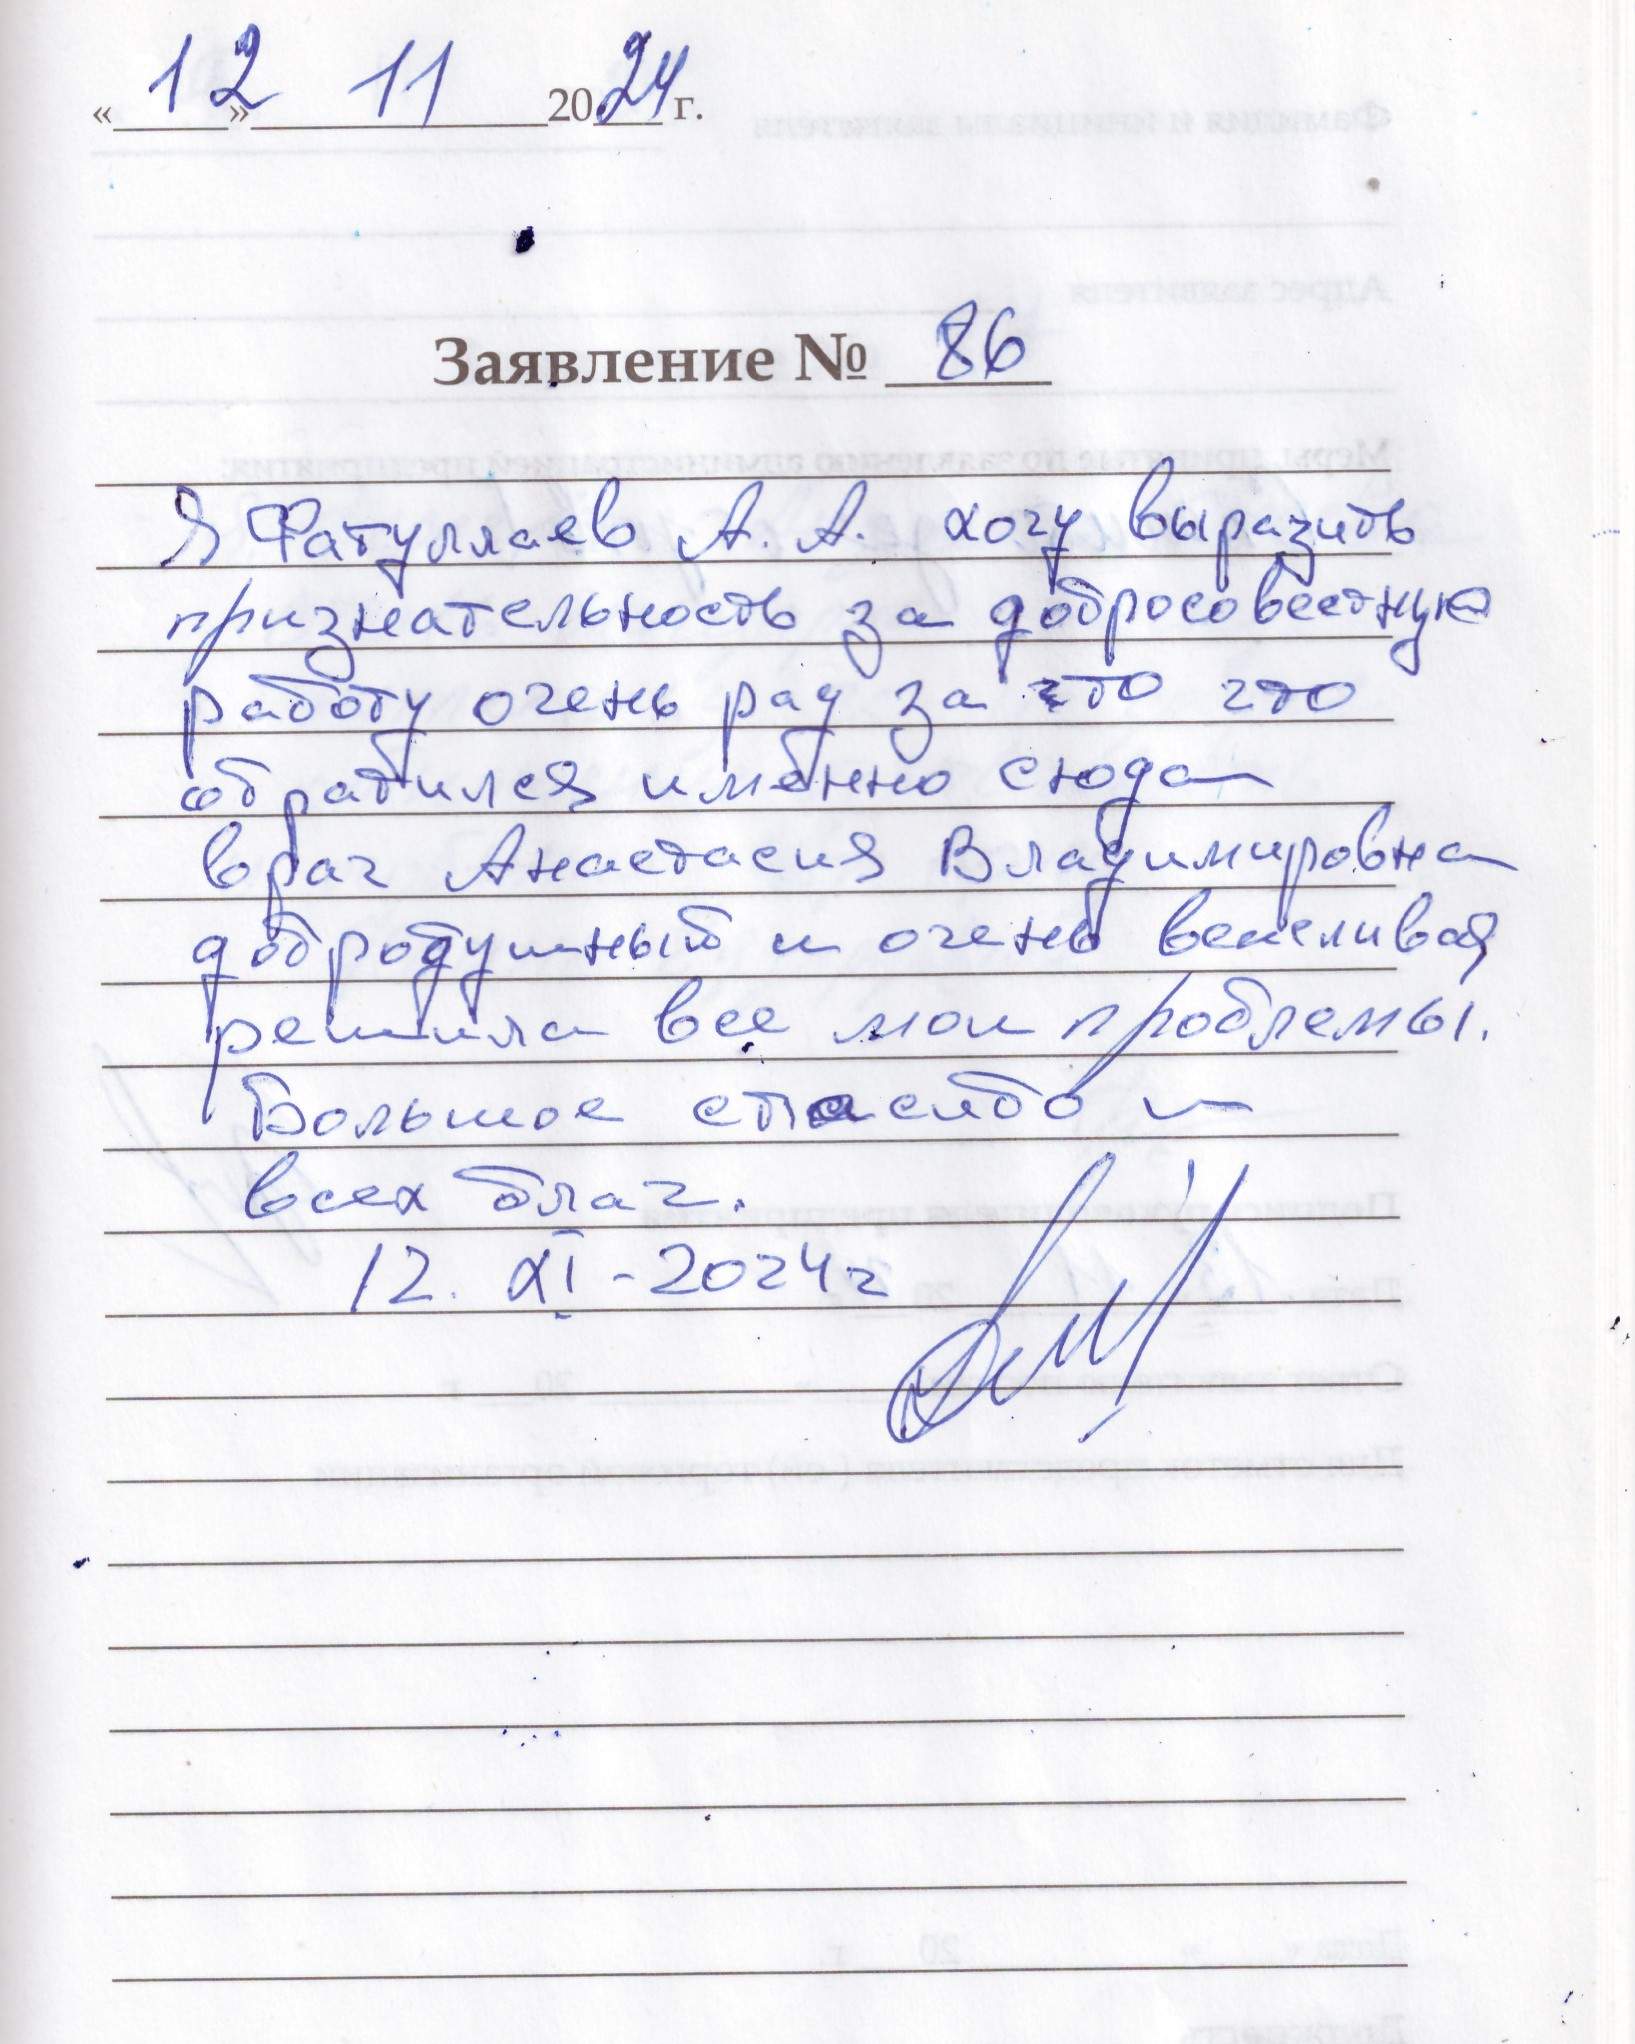 «12» 11 2024 г.
Заявление № 86
Я Фатуллаев А. А. хочу выразить
признательность за добросовестную
работу очень рад за что что
обратился именно сюда
врач Анастасия Владимировна
добродушный и очень вежливая
решила все мои проблемы.
Большое спасибо и
всех благ.
12. XI - 2024г